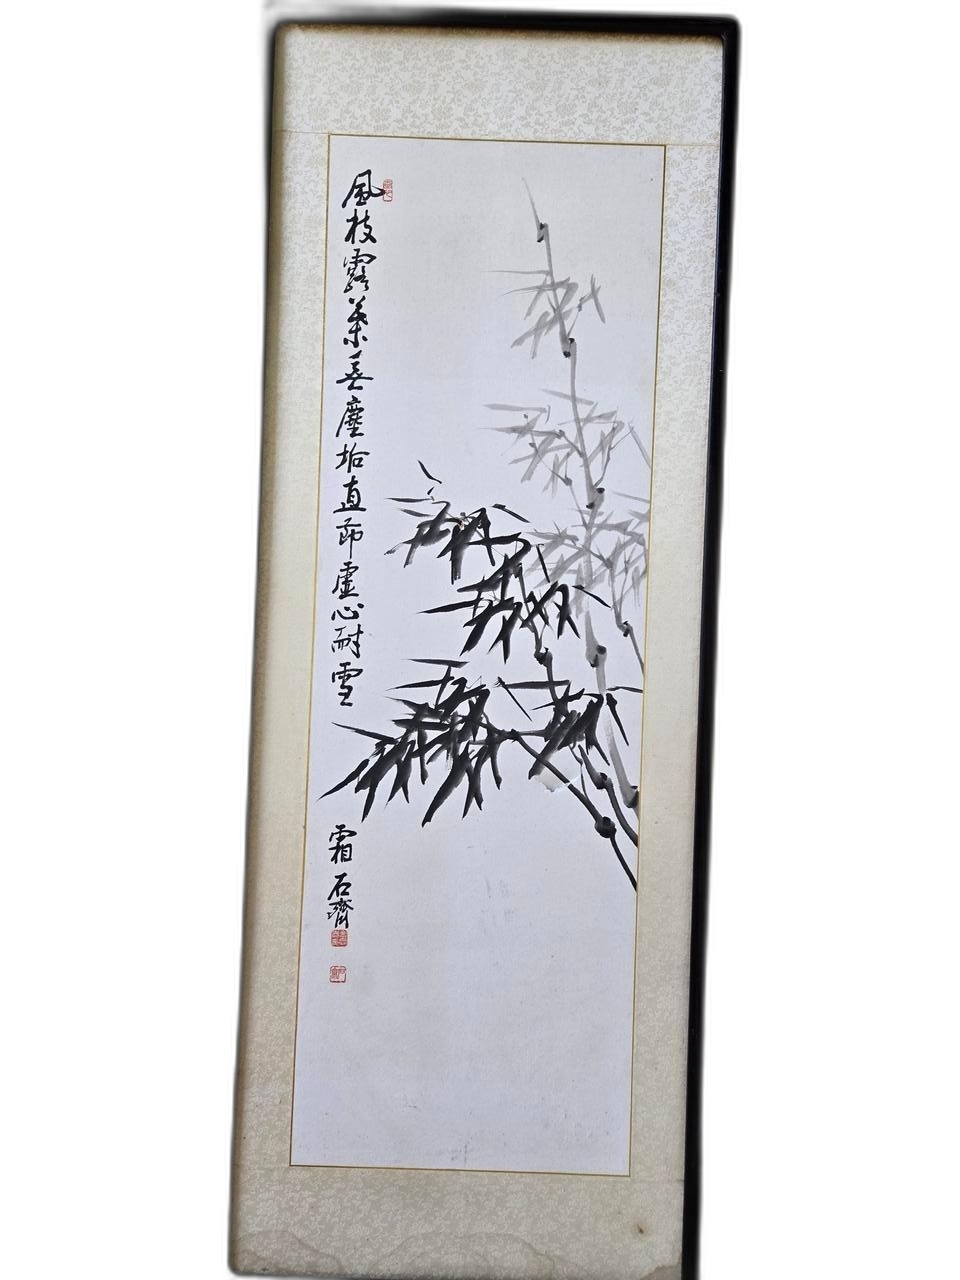 風枝露葉無塵垢直節虛心耐雪
霜 石齊